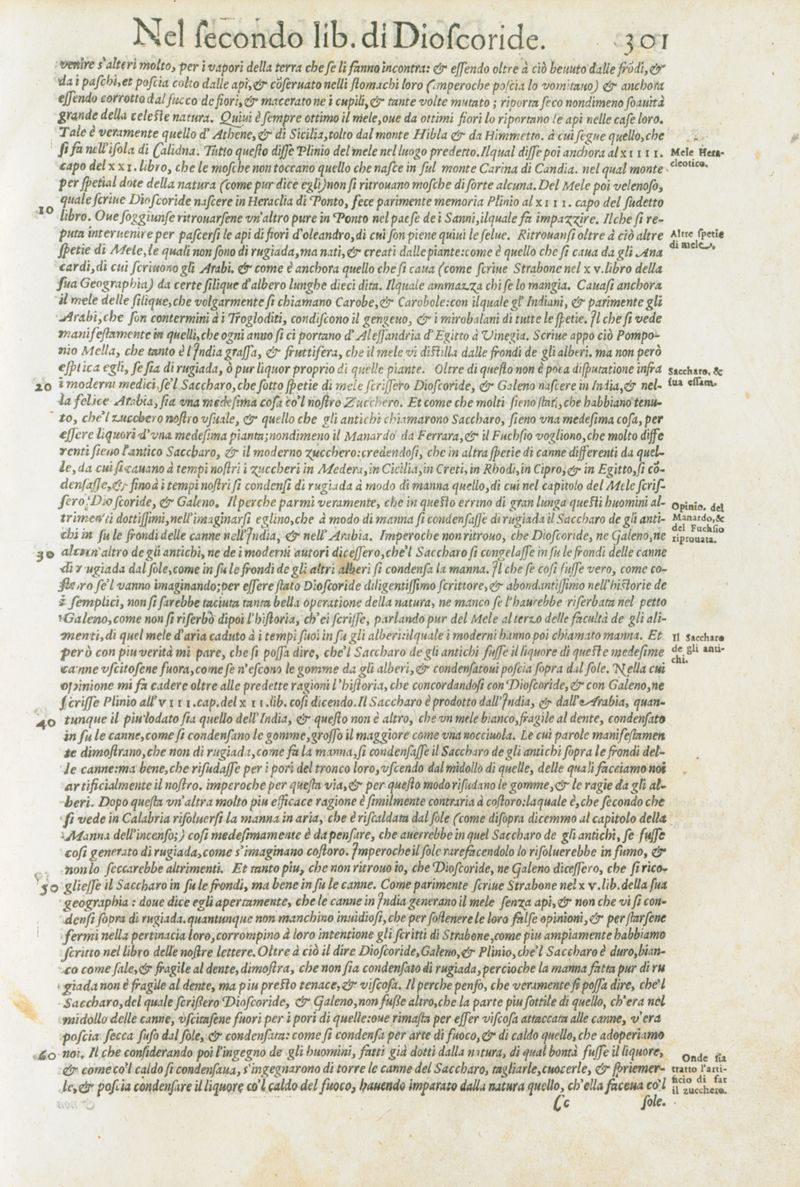 Nel ſecondo lib. di Dioſcoride. 301
venire s'alteri molto, per i vapori della terra che ſe li fanno incontra: & eſſendo oltre à ciò beuuto dalle frōdi, &
da i paſchi, et poſcia colto dalle api, & cōſeruato nelli ſtomachi loro (imperoche poſcia lo vomitano) & anchora
eſſendo corrotto dal ſucco de fiori, & macerato ne i cupili, & tante volte mutato; riporta ſeco nondimeno ſoauità
grande della celeſte natura. Quiui è ſempre ottimo il mele, oue da ottimi fiori lo riportano le api nelle caſe loro.
Tale è veramente quello d'Athene, & di Sicilia, tolto dal monte Hibla & da Himmetto. à cui ſegue quello, che
ſi fa nell'iſola di Calidna. Tutto queſto diſſe Plinio del mele nel luogo predetto. Ilqual diſſe poi anchora al XIIII.
capo del XXI. libro, che le moſche non toccano quello che naſce in ſul monte Carina di Candia. nel qual monte
per ſpetial dote della natura (come pur dice egli) non ſi ritrouano moſche di ſorte alcuna. Del Mele poi velenoſo,
quale ſcriue Dioſcoride naſcere in Heraclia di Ponto, fece parimente memoria Plinio al XIII. capo del ſudetto
10 libro. Oue ſoggiunſe ritrouarſene vn'altro pure in Ponto nel paeſe de i Sanni, ilquale fa impazzire. Ilche ſi re-
puta interuenire per paſcerſi le api di fiori d'oleandro, di cui ſon piene quiui le ſelue. Ritrouanſi oltre à ciò altre
ſpetie di Mele, le quali non ſono di rugiada, ma nati, & creati dalle piante: come è quello che ſi caua da gli Ana
cardi, di cui ſcriuono gli Arabi. & come è anchora quello che ſi caua (come ſcriue Strabone nel XV. libro della
ſua Geographia) da certe ſilique d'albero lunghe dieci dita. Ilquale ammazza chi ſe lo mangia. Cauaſi anchora
il mele delle ſilique, che volgarmente ſi chiamano Carobe, & Carobole: con ilquale gl'Indiani, & parimente gli
Arabi, che ſon contermini à i Trogloditi, condiſcono il gengeuo, & i mirobalani di tutte le ſpetie. Il che ſi vede
manifeſtamente in quelli, che ogni anno ſi ci portano d'Aleſſandria d'Egitto à Vinegia. Scriue appo ciò Pompo-
nio Mella, che tanto è l'India graſſa, & fruttifera, che il mele vi diſtilla dalle frondi de gli alberi. ma non però
eſplica egli, ſe ſia di rugiada, ò pur liquor proprio di quelle piante. Oltre di queſto non è poca diſputatione infra
20 i moderni medici, ſe'l Saccharo, che ſotto ſpetie di mele ſcriſſero Dioſcoride, & Galeno naſcere in India, & nel-
la felice Arabia, ſia vna medeſima coſa co'l noſtro Zucchero. Et come che molti ſieno ſtati, che habbiano tenu-
to, che'l zucchero noſtro vſuale, & quello che gli antichi chiamarono Saccharo, ſieno vna medeſima coſa, per
eſſere liquori d'vna medeſima pianta; nondimeno il Manardo da Ferrara, & il Fuchſio vogliono, che molto diffe
renti ſieno l'antico Saccharo, & il moderno zucchero: credendoſi, che in altra ſpetie di canne differenti da quel-
le, da cui ſi cauano à tempi noſtri i zuccheri in Medera, in Cicilia, in Creti, in Rhodi, in Cipro, & in Egitto, ſi cō-
denſaſſe, & fino à i tempi noſtri ſi condenſi di rugiada à modo di manna quello, di cui nel capitolo del Mele ſcriſ-
ſero Dioſcoride, & Galeno. Il perche parmi veramente, che in queſto errino di gran lunga queſti huomini al-
trimenti dottiſſimi, nell'imaginarſi eglino, che à modo di manna ſi condenſaſſe di rugiada il Saccharo de gli anti-
chi in ſu le frondi delle canne nell'India, & nell'Arabia. Imperoche non ritrouo, che Dioſcoride, ne Galeno, ne
30 alcun'altro de gli antichi, ne de i moderni autori diceſſero, che'l Saccharo ſi congelaſſe in ſu le frondi delle canne
di rugiada dal ſole, come in ſu le frondi de gli altri alberi ſi condenſa la manna. Il che ſe coſi fuſſe vero, come co-
ſtoro ſe'l vanno imaginando; per eſſere ſtato Dioſcoride diligentiſſimo ſcrittore, & abondantiſſimo nell'hiſtorie de
i ſemplici, non ſi ſarebbe taciuta tanta bella operatione della natura, ne manco ſe l'haurebbe riſerbata nel petto
Galeno, come non ſi riſerbò dipoi l'hiſtoria, ch'ei ſcriſſe, parlando pur del Mele al terzo delle facultà de gli ali-
menti, di quel mele d'aria caduto à i tempi ſuoi in ſu gli alberi: ilquale i moderni hanno poi chiamato manna. Et
però con piu verità mi pare, che ſi poſſa dire, che'l Saccharo de gli antichi fuſſe il liquore di queſte medeſime
canne vſcitoſene fuora, come ſe n'eſcono le gomme da gli alberi, & condenſatoui poſcia ſopra dal ſole. Nella cui
opinione mi fa cadere oltre alle predette ragioni l'hiſtoria, che concordandoſi con Dioſcoride, & con Galeno, ne
ſcriſſe Plinio all'VIII. cap. del XII. lib. coſi dicendo. Il Saccharo è prodotto dall'India, & dall'Arabia, quan-
40 tunque il piu lodato ſia quello dell'India, & queſto non è altro, che vn mele bianco, fragile al dente, condenſato
in ſu le canne, come ſi condenſano le gomme, groſſo il maggiore come vna nocciuola. Le cui parole manifeſtamen
te dimoſtrano, che non di rugiada, come fa la manna, ſi condenſaſſe il Saccharo de gli antichi ſopra le frondi del-
le canne: ma bene, che riſudaſſe per i pori del tronco loro, vſcendo dal midollo di quelle, delle quali facciamo noi
artificialmente il noſtro. imperoche per queſta via, & per queſto modo riſudano le gomme, & le ragie da gli al-
beri. Dopo queſta vn'altra molto piu efficace ragione è ſimilmente contraria à coſtoro: laquale è, che ſecondo che
ſi vede in Calabria riſoluerſi la manna in aria, che è riſcaldata dal ſole (come diſopra dicemmo al capitolo della
Manna dell'incenſo;) coſi medeſimamente è da penſare, che auerrebbe in quel Saccharo de gli antichi, ſe fuſſe
coſi generato di rugiada, come s'imaginano coſtoro. Imperoche il ſole rarefacendolo lo riſoluerebbe in fumo, &
non lo ſeccarebbe altrimenti. Et tanto piu, che non ritrouo io, che Dioſcoride, ne Galeno diceſſero, che ſi rico-
50 glieſſe il Saccharo in ſu le frondi, ma bene in ſu le canne. Come parimente ſcriue Strabone nel XV. lib. della ſua
geographia: doue dice egli apertamente, che le canne in India generano il mele ſenza api, & non che vi ſi con-
denſi ſopra di rugiada. quantunque non manchino inuidioſi, che per ſoſtenere le loro falſe opinioni, & per ſtarſene
fermi nella pertinacia loro, corrompino à loro intentione gli ſcritti di Strabone, come piu ampiamente habbiamo
ſcritto nel libro delle noſtre lettere. Oltre à ciò il dire Dioſcoride, Galeno, & Plinio, che'l Saccharo è duro, bian-
co come ſale, & fragile al dente, dimoſtra, che non ſia condenſato di rugiada, percioche la manna fatta pur di ru
giada non è fragile al dente, ma piu preſto tenace, & viſcoſa. Il perche penſo, che veramente ſi poſſa dire, che'l
Saccharo, del quale ſcriſſero Dioſcoride, & Galeno, non fuſſe altro, che la parte piu ſottile di quello, ch'era nel
midollo delle canne, vſcitaſene fuori per i pori di quelle: oue rimaſta per eſſer viſcoſa attaccata alle canne, v'era
poſcia ſecca ſuſo dal ſole, & condenſata: come ſi condenſa per arte di fuoco, & di caldo quello, che adoperiamo
60 noi. Il che conſiderando poi l'ingegno de gli huomini, fatti già dotti dalla natura, di qual bontà fuſſe il liquore,
& come co'l caldo ſi condenſaua, s'ingegnarono di torre le canne del Saccharo, tagliarle, cuocerle, & ſpriemer-
le, & poſcia condenſare il liquore co'l caldo del fuoco, hauendo imparato dalla natura quello, ch'ella faceua co'l
Cc ſole.
Mele Hera-
cleotico.
Altre ſpetie
di mele.
Saccharo, &
ſua eſſam.
Opinio. del
Manardo, &
del Fuchſio
riprouata.
Il Saccharo
de gli anti-
chi.
Onde ſia
tratto l'arti-
ficio di far
il zucchero.